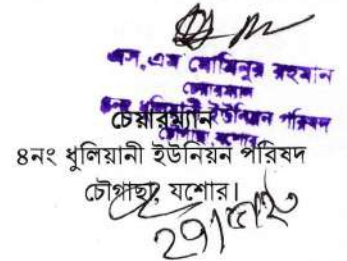 এস,এম মোমিনুর রহমান
চেয়ারম্যান
৪নং ধুলিয়ানী ইউনিয়ন পরিষদ
চৌগাছা, যশোর
চেয়ারম্যান
৪নং ধুলিয়ানী ইউনিয়ন পরিষদ
চৌগাছা, যশোর।